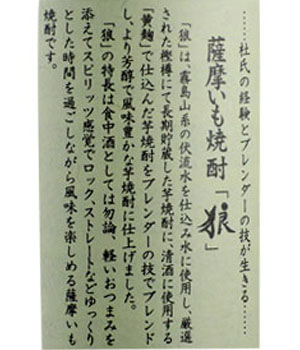 ……杜氏の経験とブレンダーの技が生きる……
薩摩いも焼酎「狼」
「狼」は、霧島山系の伏流水を仕込み水に使用し、厳選
された樫樽にて長期貯蔵した芋焼酎に、清酒に使用する
「黄麹」で仕込んだ芋焼酎をブレンダーの技でブレンド
し、より芳醇で風味豊かな芋焼酎に仕上げました。
「狼」の特長は食中酒としては勿論、軽いおつまみを
添えてスピリッツ感覚でロック、ストレートなどゆっくり
とした時間を過ごしながら風味を楽しめる薩摩いも
焼酎です。